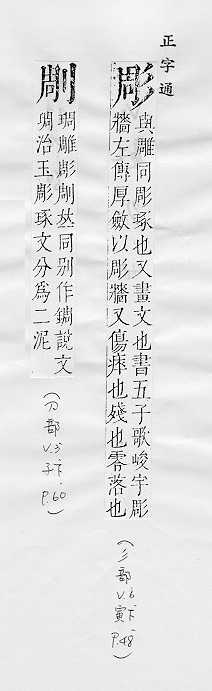 正字通
彫
與雕同彫琢也又畫文也書五子歌峻宇彫
牆左傳厚斂以彫牆又傷瘁也殘也零落也
(彡部 V.6 寅下 P.48)
㓮
琱雕彫㓮𠀤同別作說文
琱治玉彫琢文分爲二泥
(刀部 V.3 子下 P.60)